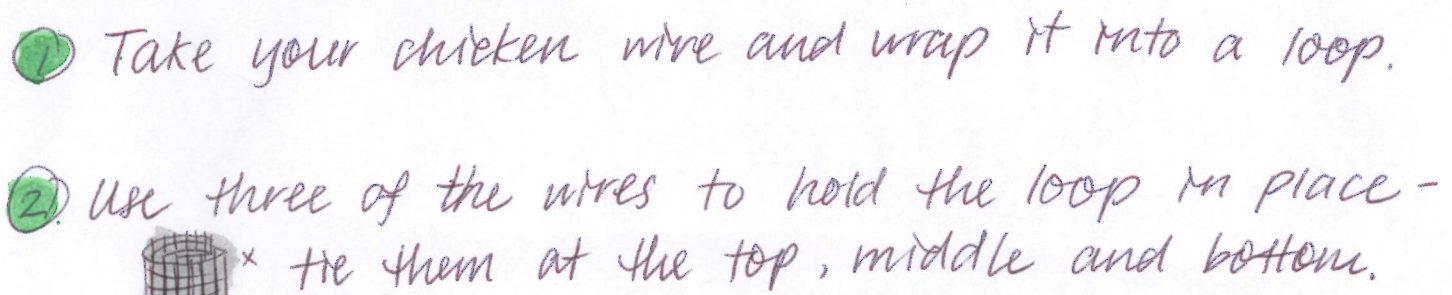 1 Take your chicken wire and wrap it into a loop.
2. Use three of the wires to hold the loop in place -
x tie them at the top, middle and bottom.